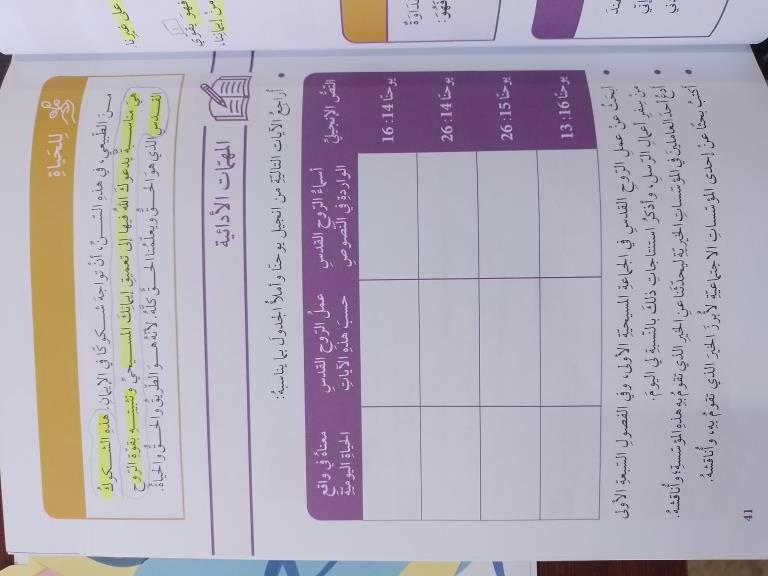 للحَياةِ
مـنَ الطّبيعي، في هذهِ السّـنِّ، أن تواجهَ شـكوكًا في الإيمانِ. هذه الشـكوكُ
هيَ مناسـبةٌ يدعوكَ اللهُ فيها إلى تعميقِ إيمانِكَ المسـيحيِّ وتثبيتِـهِ بقوّةِ الرّوحِ
القدسِ الذي هو الحـقُّ ويعلّمُنا الحـقَّ كلَّهُ. لأنّهُ هـوَ الطّريقُ والحـقُّ والحياةُ.
المهمّات الأدائية
• أراجعُ الآياتِ التاليّةَ من انجيلِ يوحنّا وأملأُ الجدولَ بما يناسبهُ:
النّصُّ الإنجيليُّ
أسماءُ الرّوحِ القدسِ
الواردةِ في النّصوصِ
عملُ الرّوحِ القدسِ
حسبَ هذهِ الآياتِ
معناهُ في واقعِ
الحياةِ اليوميّةِ
يوحنّا 14: 16
يوحنّا 14: 26
يوحنّا 15: 26
يوحنّا 16: 13
• أبحثُ عنْ عملِ الرّوحِ القدسِ في الجماعةِ المسيحيّةِ الأولى، وفي الفصولِ السّبعةِ الأولى
منْ سفرِ أعمالِ الرّسلِ، وأذكرُ استنتاجاتِ ذلكَ بالنّسبةِ لي اليومَ.
• أدعُ أحدَ العاملينَ في المؤسّساتِ الخيريّةِ ليحدّثَنا عنِ الخيرِ الذي تقومُ بهِ هذهِ المؤسّسةِ؛ وأناقشهُ.
• أكتبُ بحثًا عنْ إحدى المؤسّساتِ الاجتماعيّةِ لأُبرزَ الخيرَ الذي تقومُ بهِ، وأُناقشهُ.
41